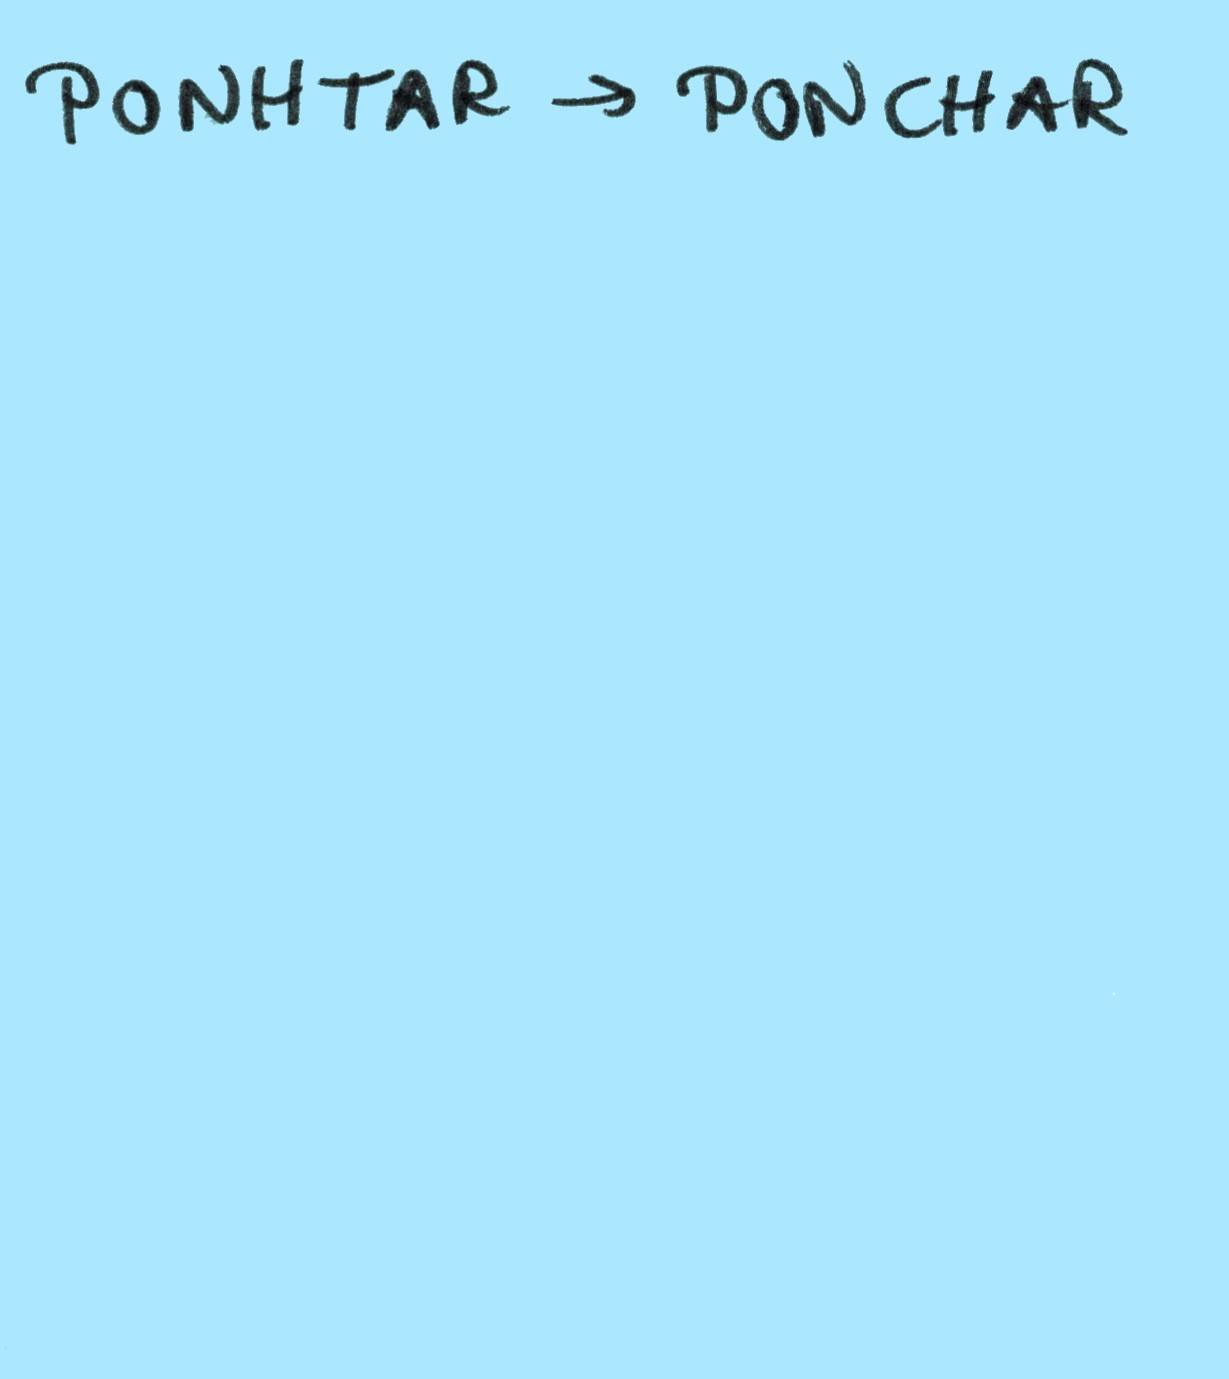 PONHTAR → PONCHAR